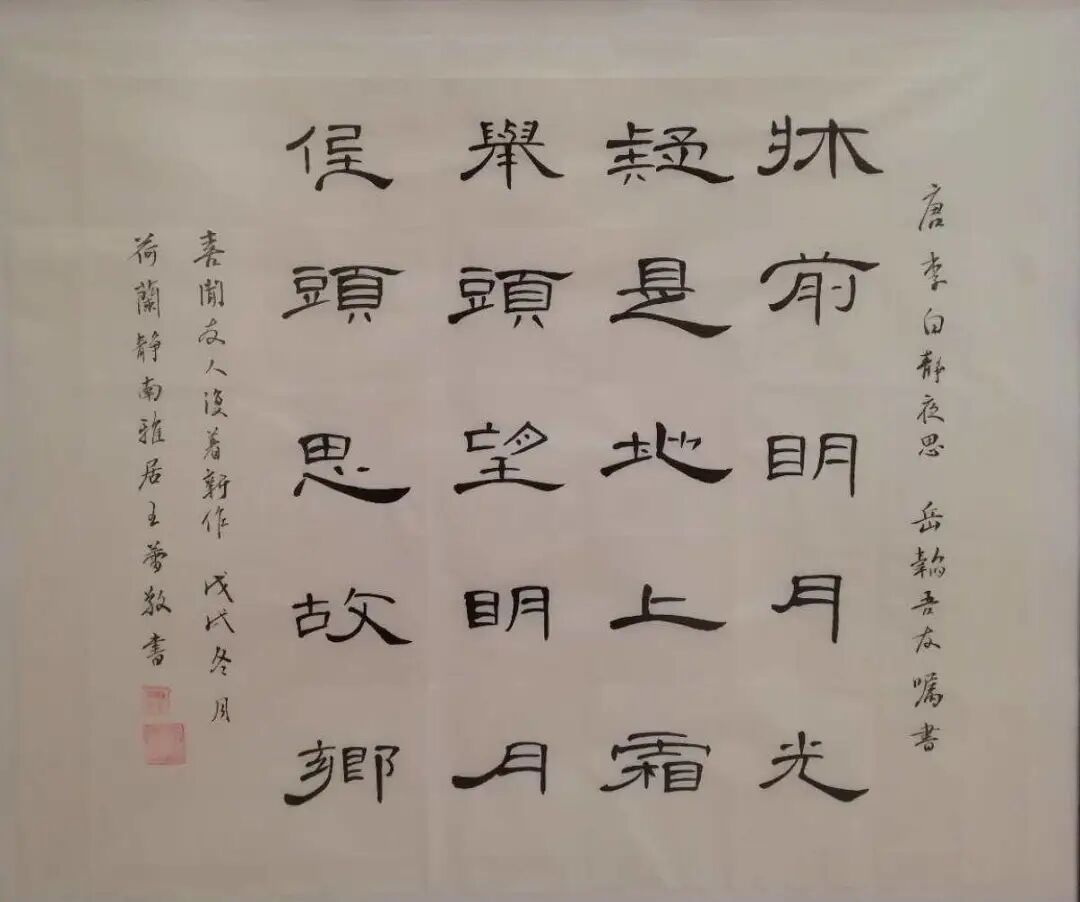 唐李白静夜思 岳韜吾友嘱書
牀前明月光
疑是地上霜
舉頭望明月
低頭思故鄉
喜聞友人復著新作 戊戌冬月
荷蘭静南雅居王蕾敬書